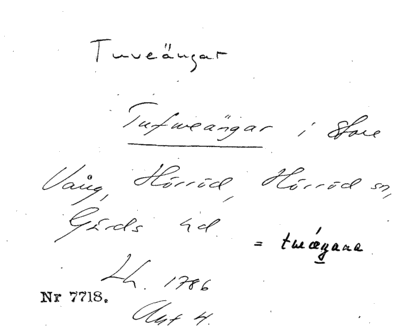 Tuveängar
Tufweängar i Store
Vång, Hörröd, Hörröd sn,
Gärds hd
= twǽgana
Lh. 1786
Nr 7718.
Akt 4.